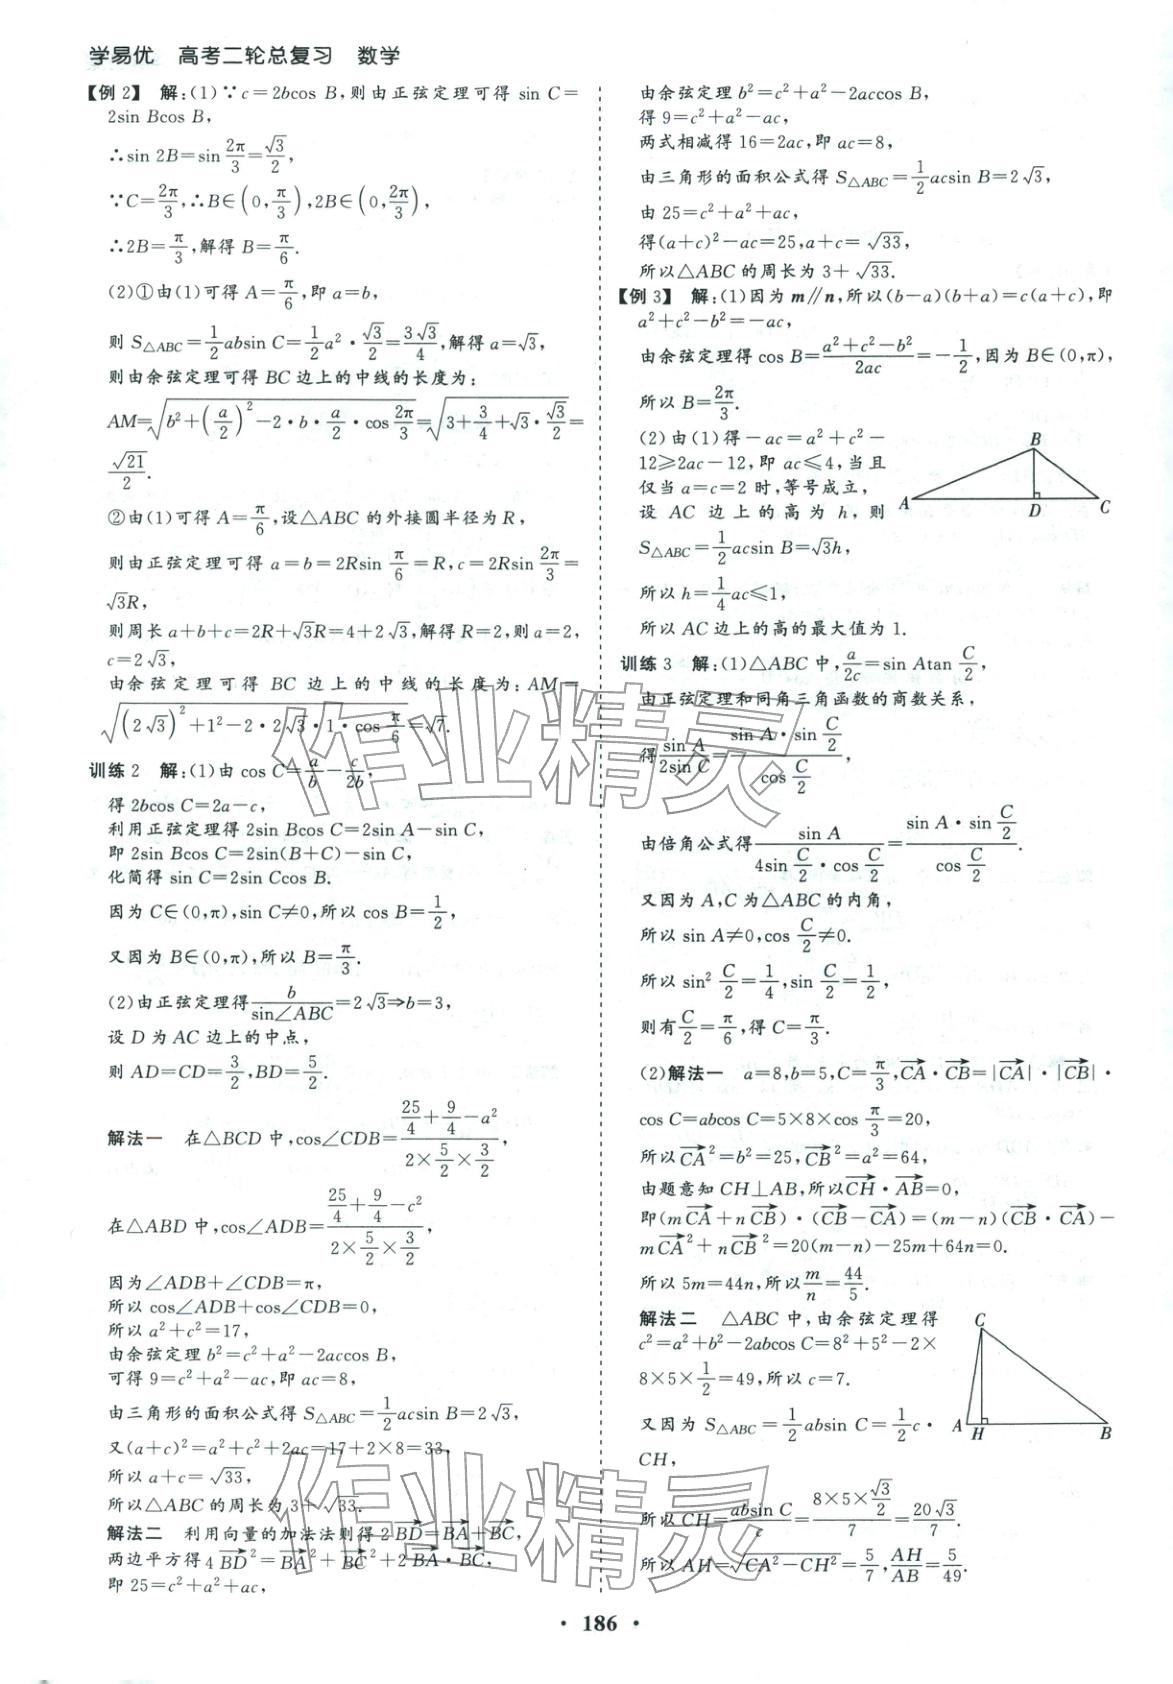 学易优 高考二轮总复习 数学
【例 2】 解:(1)∵c=2bcos B,则由正弦定理可得 sin C=
2sin Bcos B,
∴sin 2B=sin 2π/3=√3/2,
∵C=2π/3,∴B∈(0,π/3),2B∈(0,2π/3),
∴2B=π/3,解得 B=π/6.
(2)①由(1)可得 A=π/6,即 a=b,
则 S△ABC=1/2absin C=1/2a²·√3/2=3√3/4,解得 a=√3,
则由余弦定理可得 BC 边上的中线的长度为:
AM=√(b²+(a/2)²-2·b·a/2·cos 2π/3)=√(3+3/4+√3·√3/2)=
√21/2.
②由(1)可得 A=π/6,设△ABC 的外接圆半径为 R,
则由正弦定理可得 a=b=2Rsin π/6=R,c=2Rsin 2π/3=
√3R,
则周长 a+b+c=2R+√3R=4+2√3,解得 R=2,则 a=2,
c=2√3,
由余弦定理可得 BC 边上的中线的长度为:AM=
√((2√3)²+1²-2·2√3·1·cos π/6)=√7.
训练 2 解:(1)由 cos C=a/b-c/2b,
得 2bcos C=2a-c,
利用正弦定理得 2sin Bcos C=2sin A-sin C,
即 2sin Bcos C=2sin(B+C)-sin C,
化简得 sin C=2sin Ccos B.
因为 C∈(0,π),sin C≠0,所以 cos B=1/2,
又因为 B∈(0,π),所以 B=π/3.
(2)由正弦定理得b/sin∠ABC=2√3⇒b=3,
设 D 为 AC 边上的中点,
则 AD=CD=3/2,BD=5/2.
解法一 在△BCD 中,cos∠CDB=(25/4+9/4-a²)/(2×5/2×3/2),
在△ABD 中,cos∠ADB=(25/4+9/4-c²)/(2×5/2×3/2),
因为∠ADB+∠CDB=π,
所以 cos∠ADB+cos∠CDB=0,
所以 a²+c²=17,
由余弦定理 b²=c²+a²-2accos B,
可得 9=c²+a²-ac,即 ac=8,
由三角形的面积公式得 S△ABC=1/2acsin B=2√3,
又(a+c)²=a²+c²+2ac=17+2×8=33,
所以 a+c=√33,
所以△ABC 的周长为 3+√33.
解法二 利用向量的加法法则得 2BD→=BA→+BC→,
两边平方得 4BD→²=BA→²+BC→²+2BA→·BC→,
即 25=c²+a²+ac,
由余弦定理 b²=c²+a²-2accos B,
得 9=c²+a²-ac,
两式相减得 16=2ac,即 ac=8,
由三角形的面积公式得 S△ABC=1/2acsin B=2√3,
由 25=c²+a²+ac,
得(a+c)²-ac=25,a+c=√33,
所以△ABC 的周长为 3+√33.
【例 3】 解:(1)因为 m∥n,所以(b-a)(b+a)=c(a+c),即
a²+c²-b²=-ac,
由余弦定理得 cos B=(a²+c²-b²)/2ac=-1/2,因为 B∈(0,π),
所以 B=2π/3.
(2)由(1)得-ac=a²+c²-
12≥2ac-12,即 ac≤4,当且
仅当 a=c=2 时,等号成立,
设 AC 边上的高为 h,则
S△ABC=1/2acsin B=√3h,
所以 h=1/4ac≤1,
所以 AC 边上的高的最大值为 1.
B
A
D
C
训练 3 解:(1)△ABC 中,a/2c=sin Atan C/2,
由正弦定理和同角三角函数的商数关系,
得sin A/2sin C=(sin A·sin C/2)/(cos C/2)
由倍角公式得sin A/(4sin C/2·cos C/2)=(sin A·sin C/2)/(cos C/2).
又因为 A,C 为△ABC 的内角,
所以 sin A≠0,cos C/2≠0.
所以 sin² C/2=1/4,sin C/2=1/2,
则有C/2=π/6,得 C=π/3.
(2)解法一 a=8,b=5,C=π/3,CA→·CB→=|CA→|·|CB→|·
cos C=abcos C=5×8×cos π/3=20,
所以CA→²=b²=25,CB→²=a²=64,
由题意知 CH⊥AB,所以CH→·AB→=0,
即(mCA→+nCB→)·(CB→-CA→)=(m-n)(CB→·CA→)-
mCA→²+nCB→²=20(m-n)-25m+64n=0.
所以 5m=44n,所以m/n=44/5.
解法二 △ABC 中,由余弦定理得
c²=a²+b²-2abcos C=8²+5²-2×
8×5×1/2=49,所以 c=7.
又因为 S△ABC=1/2absin C=1/2c·
CH,
所以 CH=absin C/c=(8×5×√3/2)/7=20√3/7.
所以 AH=√(CA²-CH²)=5/7,AH/AB=5/49.
C
A
H
B
作业精灵
作业精灵
· 186 ·